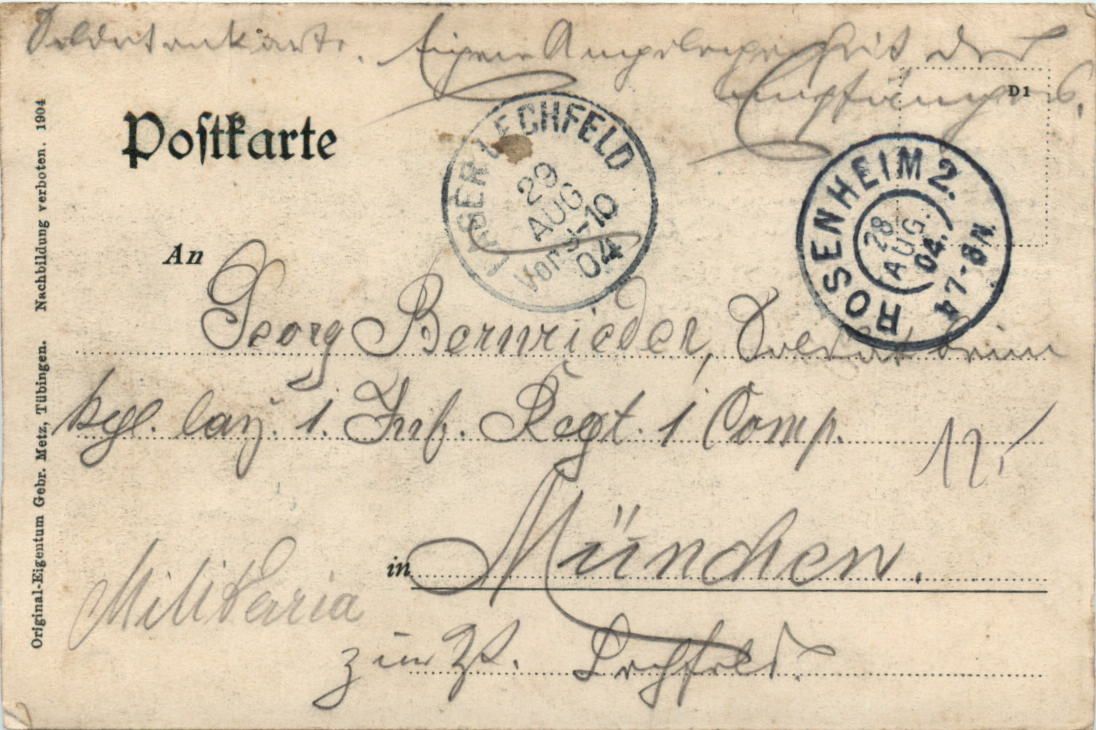 Soldatenkarte. Eigene Angelegenheit des
Empfängers.
D1
Postkarte
LAGER LECHFELD
29
AUG
Vor. 9-10
04
ROSENHEIM 2.
28
AUG.
04.
7-8 N.
An
Georg Bernrieder, Soldat beim
kgl. bay. 1. Inf. Regt. 1 Comp.
12,-
in München.
Militaria
zur Zt. Lechfeld.
Original-Eigentum Gebr. Metz, Tübingen. Nachbildung verboten. 1904